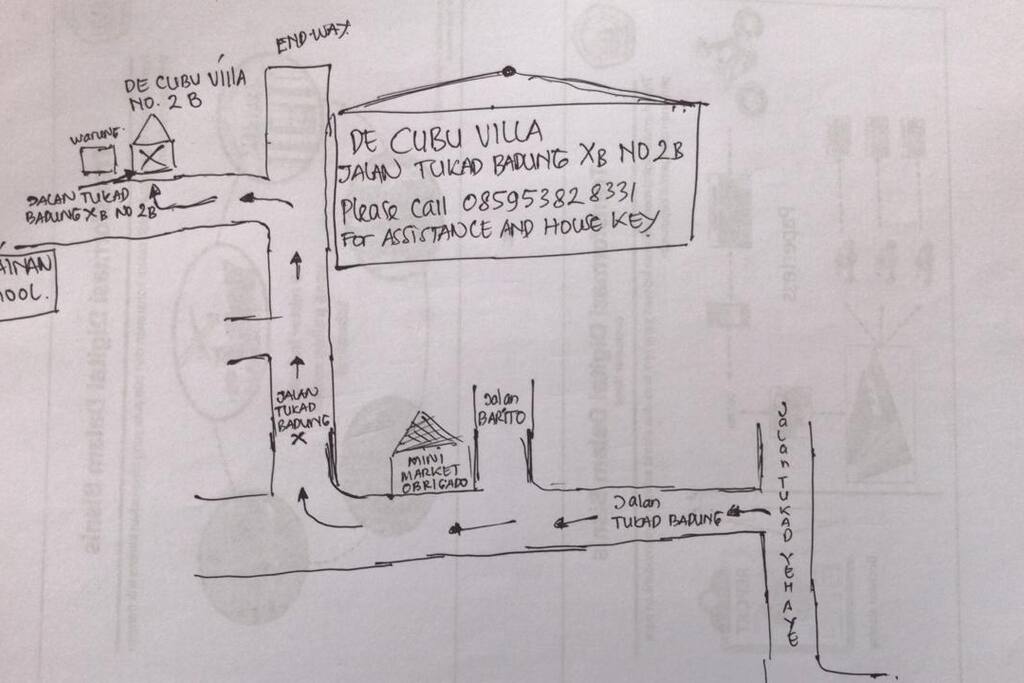 END-WAY
DE CUBU VIllA
NO. 2 B
warung
JALAN TUKAD
BADUNG XB NO 2B
DE CUBU VILLA
JALAN TUKAD BADUNG XB NO 2B
Please Call 085953828331
FOR ASSISTANCE AND HOUSE KEY
AINAN
OOL.
JALAN
TUKAD
BADUNG
X
MINI
MARKET
OBRIGADO
Jalan
BARITO
Jalan
TUKAD BADUNG
JaLan TUKAD YEH AYE